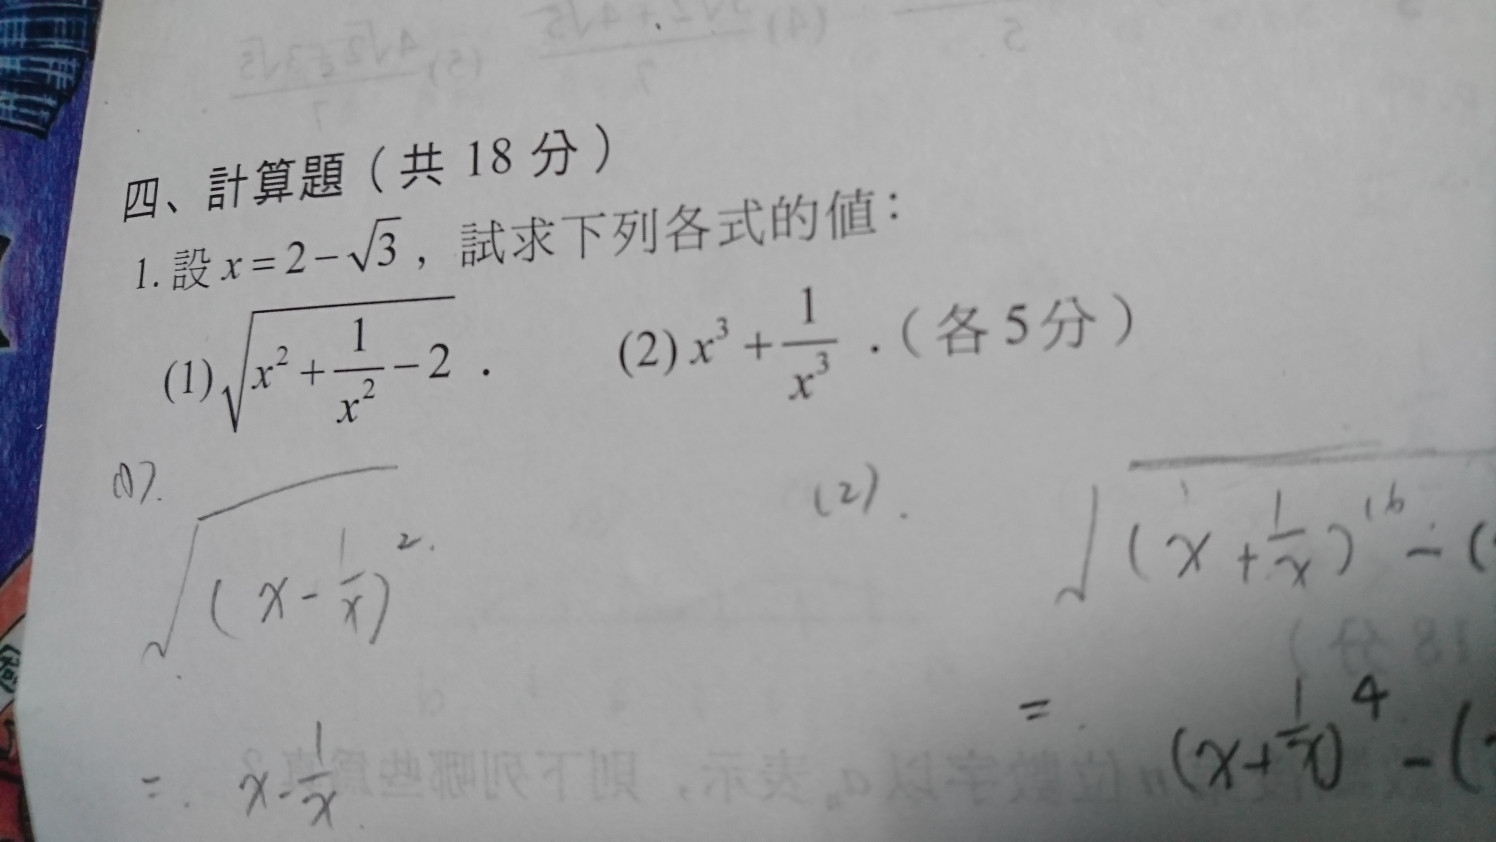 四、計算題（共 18 分）
1. 設 x = 2 − √3 ，試求下列各式的值：
(1) √(x² + 1/x² − 2) . (2) x³ + 1/x³ .（各 5 分）
(1). (2).
√(x − 1/x)² √(x + 1/x)¹⁶ − (
= x − 1/x = (x + 1/x)⁴ − (